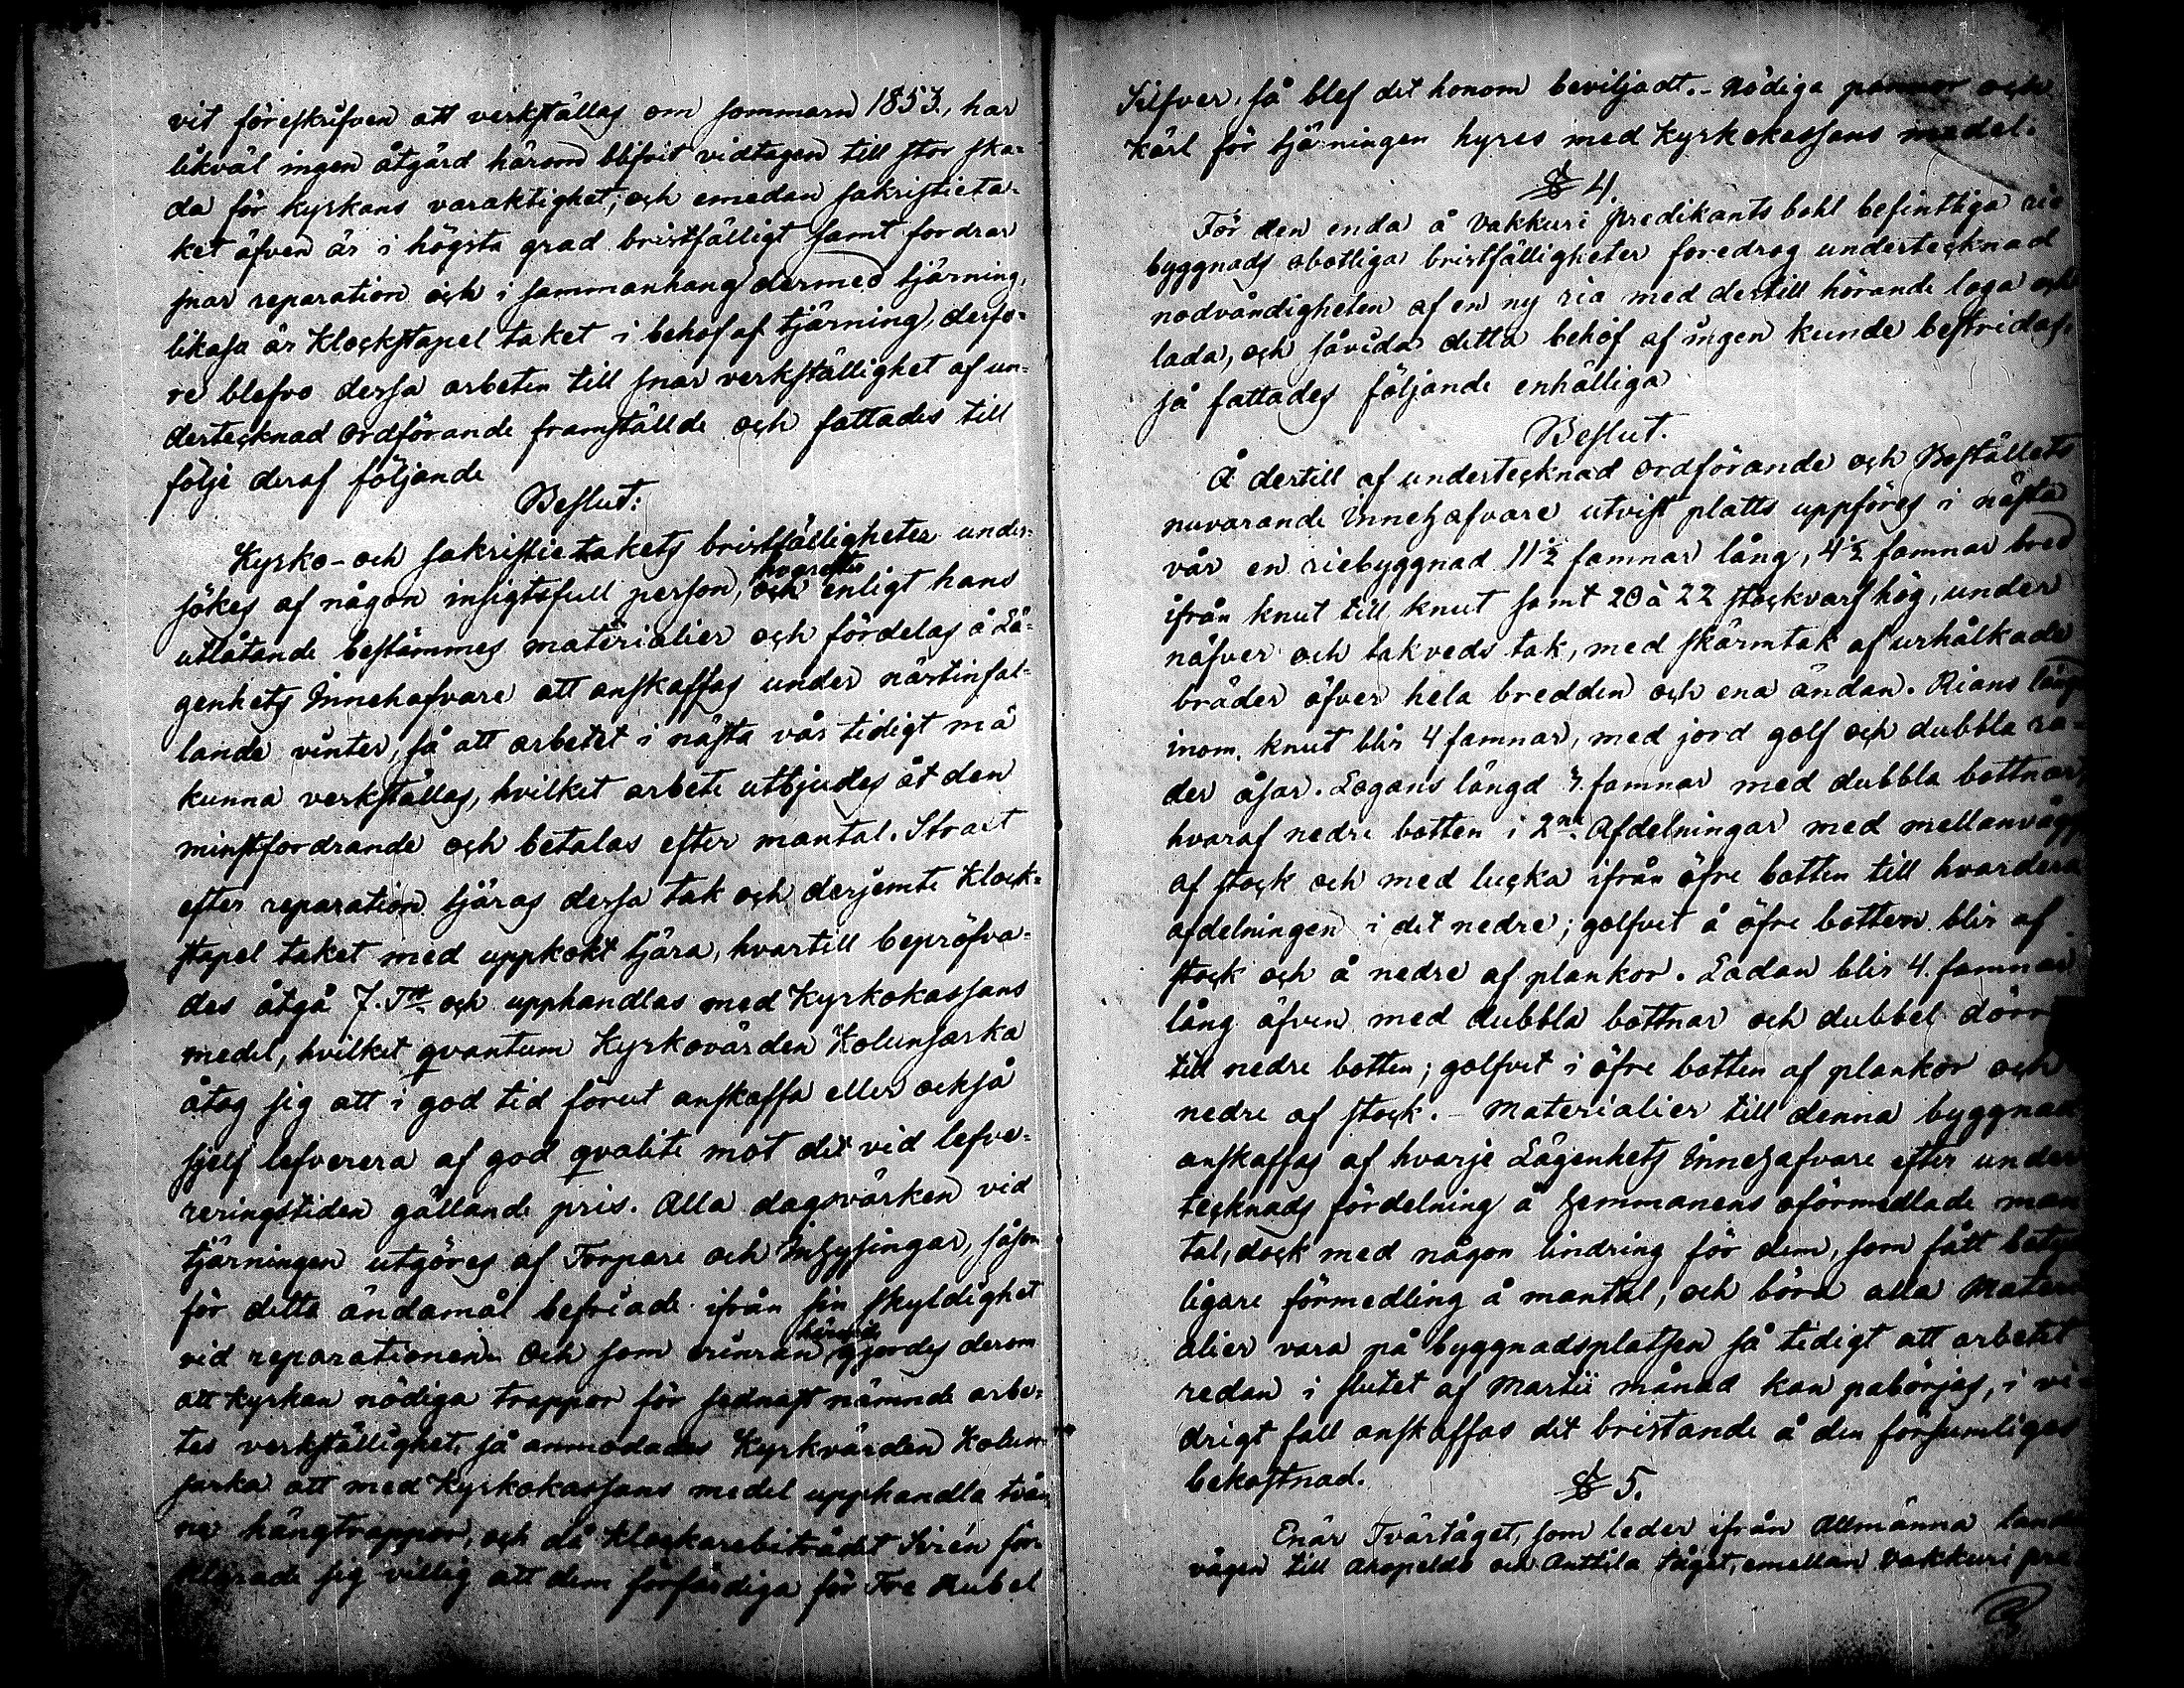 vit föreskrifven att verkställas om sommarn 1853., har
likväl ingen åtgärd härom blifvit vidtagen till stor ska=
da för kyrkans varaktighet; och emedan sakristieta=
ket äfven är i högsta grad bristfälligt samt fordrar
snar reparation och i sammanhang dermed tjärning,
likaså är Klockstapel taket i behof af tjärning, derfö=
re blefvo dessa arbeten till snar verkställighet af un=
dertecknad Ordförande framställde och fattades till
följe deraf följande
Beslut:
Kyrko- och sakristietakets bristfälligheter under=
sökes af någon insigtsfull person, och enligt hans
hvarefter
utlåtande bestämmes materialier och fördelas å Lä=
genhets Innehafvare att anskaffas under närstinfal=
lande vinter, så att arbetet i nästa vår tidigt må
kunna verkställas, hvilket arbete utbjudes åt den
minstfordrande och betalas efter mantal. Straxt
efter reparation tjäras dessa tak och derjemte Klock=
stapel taket med uppkokt tjära, hvartill bepröfva=
des åtgå 7. Tr och upphandlas med Kyrkokassans
medel, hvilket qvantum Kyrkovärden Kolunsarka
åtog sig att i god tid förut anskaffa eller också
sjelf lefverera af god qvalité mot det vid lefve=
reringstiden gällande pris. Alla dagsvärken vid
tjärningen utgöres af Torpare och Inhysingar, såsom
för detta ändamål befriade ifrån sin skyldighet
vid reparationen. Och som erinran gjordes derom
härvid
att kyrkan nödiga trappor för sednast nämnde arbe=
tes verkställighet, så anmodades Kyrkvärden Kolun=
sarka att med Kyrkokassans medel upphandla tvän=
ne hängtrappor, och då Klockarebiträdet Sirén för=
klarade sig villig att dem förfärdiga för Tre Rubel
Silfver, så blef det honom beviljadt. - Nödiga pannor och
Kärl för tjärningen hyres med Kyrkokassans medel.
§ 4.
För den enda å Vakkuri predikants bohl befintliga rie
byggnads obotliga bristfälligheter foredrog undertecknad
nodvändigheten af en ny ria med dertill hörande loga och
lada, och såvida detta behof af ingen kunde bestridas,
så fattades följande enhälliga
Beslut.
Å dertill af undertecknad Ordförande och Boställets
nuvarande Innehafvare utvist platts uppföres i nästa
vår en riebyggnad 11½ famnar lång, 4½ famnar bred
ifrån knut till knut samt 20 à 22 stockvarf hög, under
näfver och takveds tak, med skärmtak af urhålkade
bräder öfver hela bredden och ena ändan. Rians längd
inom knut blir 4 famnar, med jord golf och dubbla ra=
der åsar. Logans längd 3. famnar med dubbla bottnar,
hvaraf nedre botten i 2ne Afdelningar med mellanvägg
af stock och med lucka ifrån öfre botten till hvardera
afdelningen i det nedre; golfvet å öfre botten blir af
stock och å nedre af plankor. Ladan blir 4. famnar
lång äfven med dubbla bottnar och dubbel dörr
till nedre botten; golfvet i öfre botten af plankor och
nedre af stock. - Materialier till denna byggnad
anskaffas af hvarje Lägenhets Innehafvare efter under
tecknads fördelning å hemmanens oförmedlade man
tal, dock med någon lindring för dem, som fått
ligare förmedling å mantal, och böra alla Materi
alier vara på byggnadsplatsen så tidigt att arbetet
redan i slutet af Martii månad kan påbörjas, i vi=
drigt fall anskaffas det bristande å den försumliges
bekostnad.
§ 5.
Enär Tvärtåget, som leder ifrån Allmänna lands
vägen till Ahopeldo och Anttila tåget, emellan Vakkuri pre